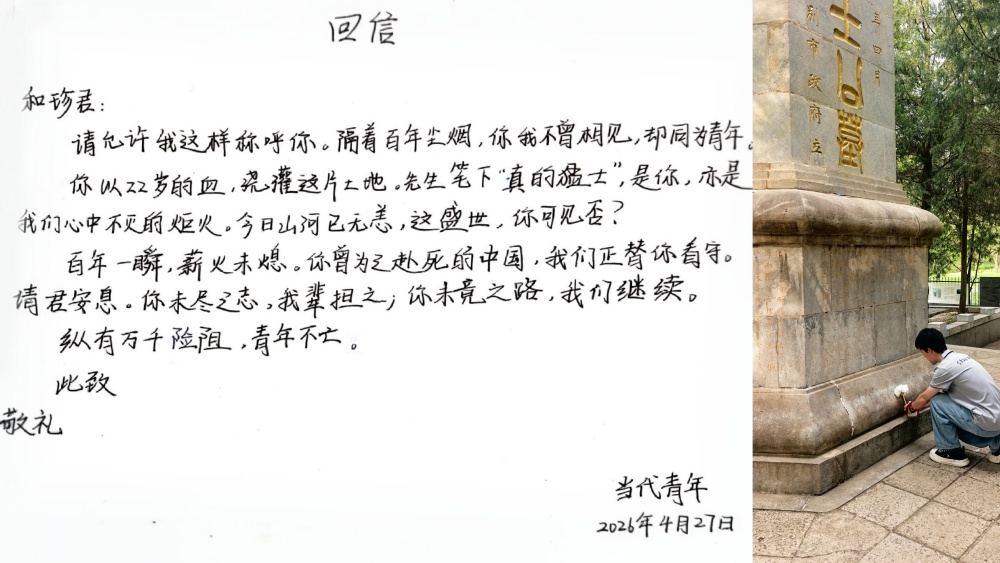 回信
和珍君：
请允许我这样称呼你。隔着百年尘烟，你我不曾相见，却同为青年。
你以22岁的血，浇灌这片土地。先生笔下“真的猛士”，是你，亦是
我们心中不灭的炬火。今日山河已无恙，这盛世，你可见否？
百年一瞬，薪火未熄。你曾为之赴死的中国，我们正替你看守。
请君安息。你未尽之志，我辈担之；你未竟之路，我们继续。
纵有万千险阻，青年不亡。
此致
敬礼
当代青年
2026年4月27日
年四月
别市政府立
士公墓